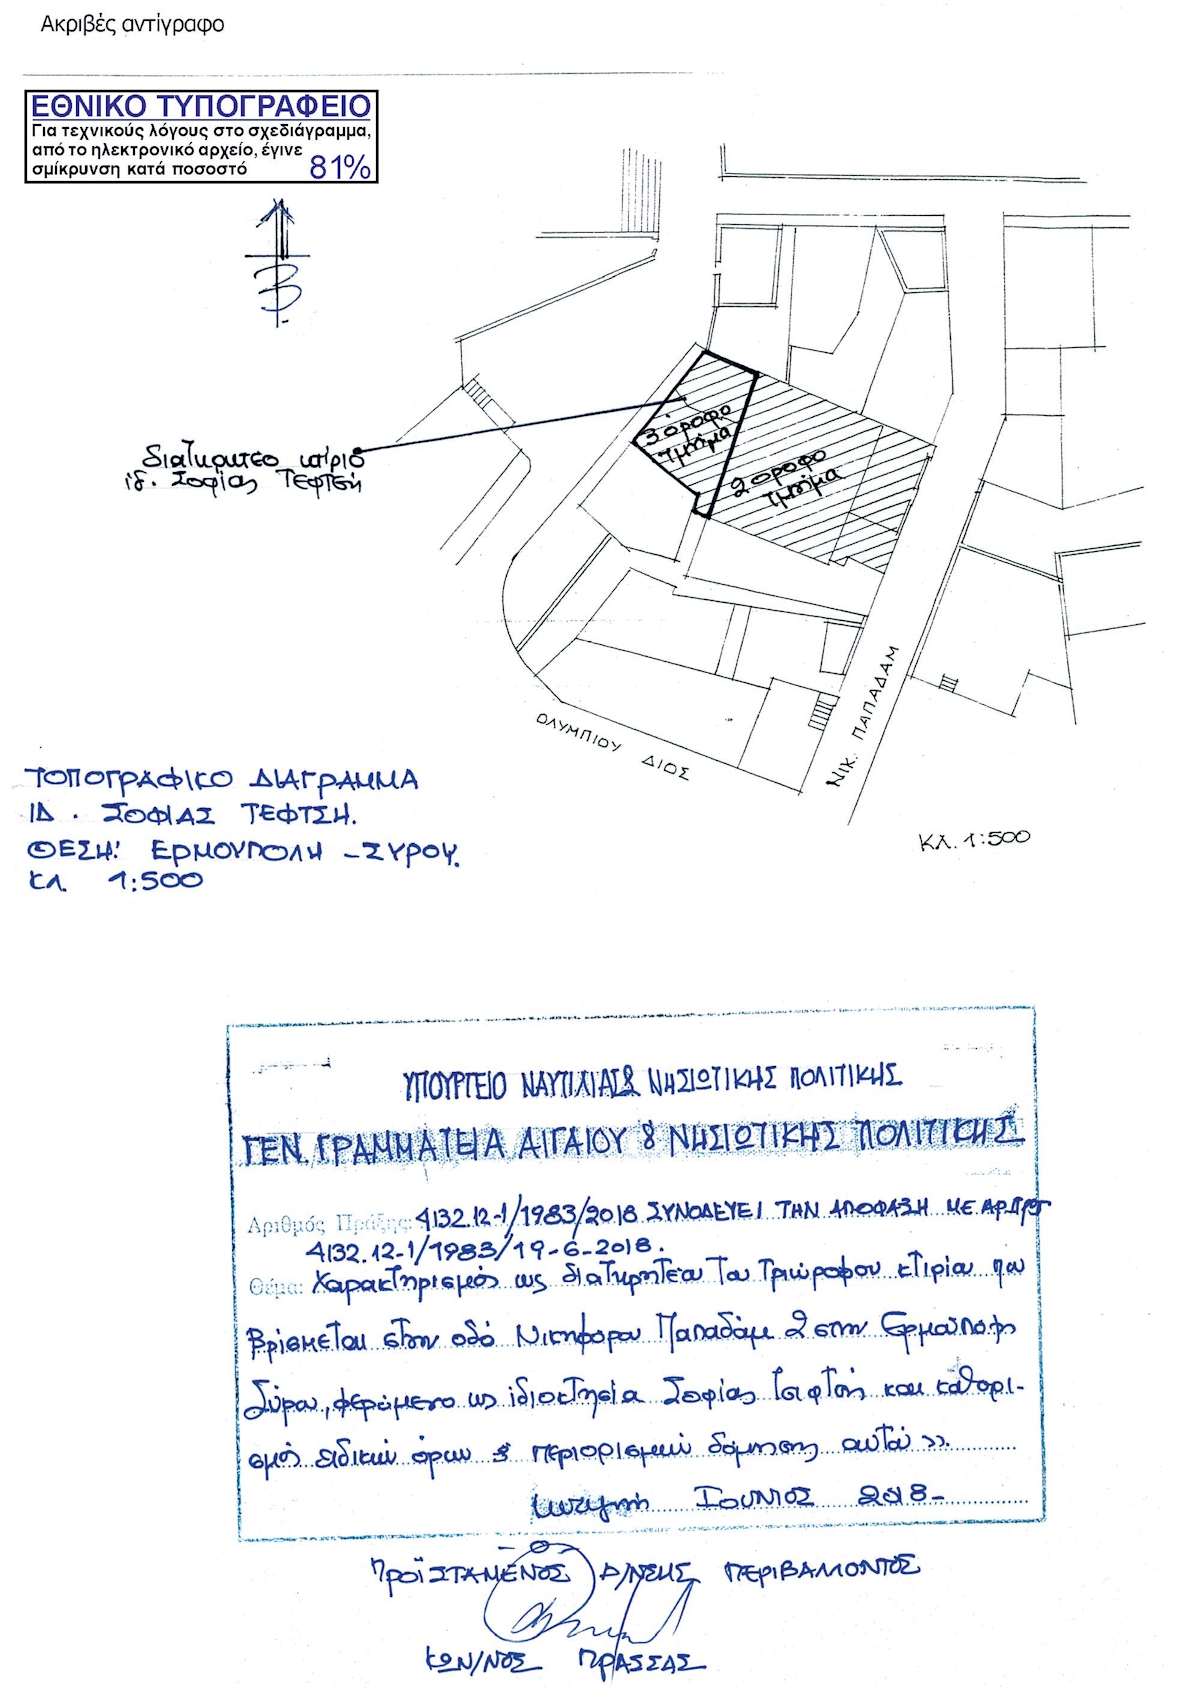 Ακριβές αντίγραφο
ΕΘΝΙΚΟ ΤΥΠΟΓΡΑΦΕΙΟ
Για τεχνικούς λόγους στο σχεδιάγραμμα,
από το ηλεκτρονικό αρχείο, έγινε
σμίκρυνση κατά ποσοστό 81%
Β
διατηρητέο κτίριο
ιδ. Σοφίας ΤΕΦΤΣΗ
3όροφο
τμήμα
2όροφο
τμήμα
ΟΛΥΜΠΙΟΥ ΔΙΟΣ
ΝΙΚ. ΠΑΠΑΔΑΜ
ΚΛ. 1:500
ΤΟΠΟΓΡΑΦΙΚΟ ΔΙΑΓΡΑΜΜΑ
ΙΔ. ΣΟΦΙΑΣ ΤΕΦΤΣΗ.
ΘΕΣΗ: ΕΡΜΟΥΠΟΛΗ - ΣΥΡΟΥ.
ΚΛ. 1:500
ΥΠΟΥΡΓΕΙΟ ΝΑΥΤΙΛΙΑΣ & ΝΗΣΙΩΤΙΚΗΣ ΠΟΛΙΤΙΚΗΣ
ΓΕΝ. ΓΡΑΜΜΑΤΕΙΑ ΑΙΓΑΙΟΥ & ΝΗΣΙΩΤΙΚΗΣ ΠΟΛΙΤΙΚΗΣ
Αριθμός Πράξης: 4132.12-1/1983/2018 ΣΥΝΟΔΕΥΕΙ ΤΗΝ ΑΠΟΦΑΣΗ ΜΕ ΑΡ.ΠΡΩΤ
4132.12-1/1983/19-6-2018.
Θέμα: Χαρακτηρισμός ως διατηρητέου του τριώροφου κτιρίου που
βρίσκεται στην οδό Νικηφόρου Παπαδάμ 2 στην Ερμούπολη
Σύρου, φερόμενο ως ιδιοκτησία Σοφίας Τεφτσή και καθορι-
σμός ειδικών όρων & περιορισμών δόμησης αυτού».
Μυτιλήνη ΙΟΥΝΙΟΣ 2018-
ΠΡΟΪΣΤΑΜΕΝΟΣ Δ/ΝΣΗΣ ΠΕΡΙΒΑΛΛΟΝΤΟΣ
ΚΩΝ/ΝΟΣ ΠΡΑΣΣΑΣ